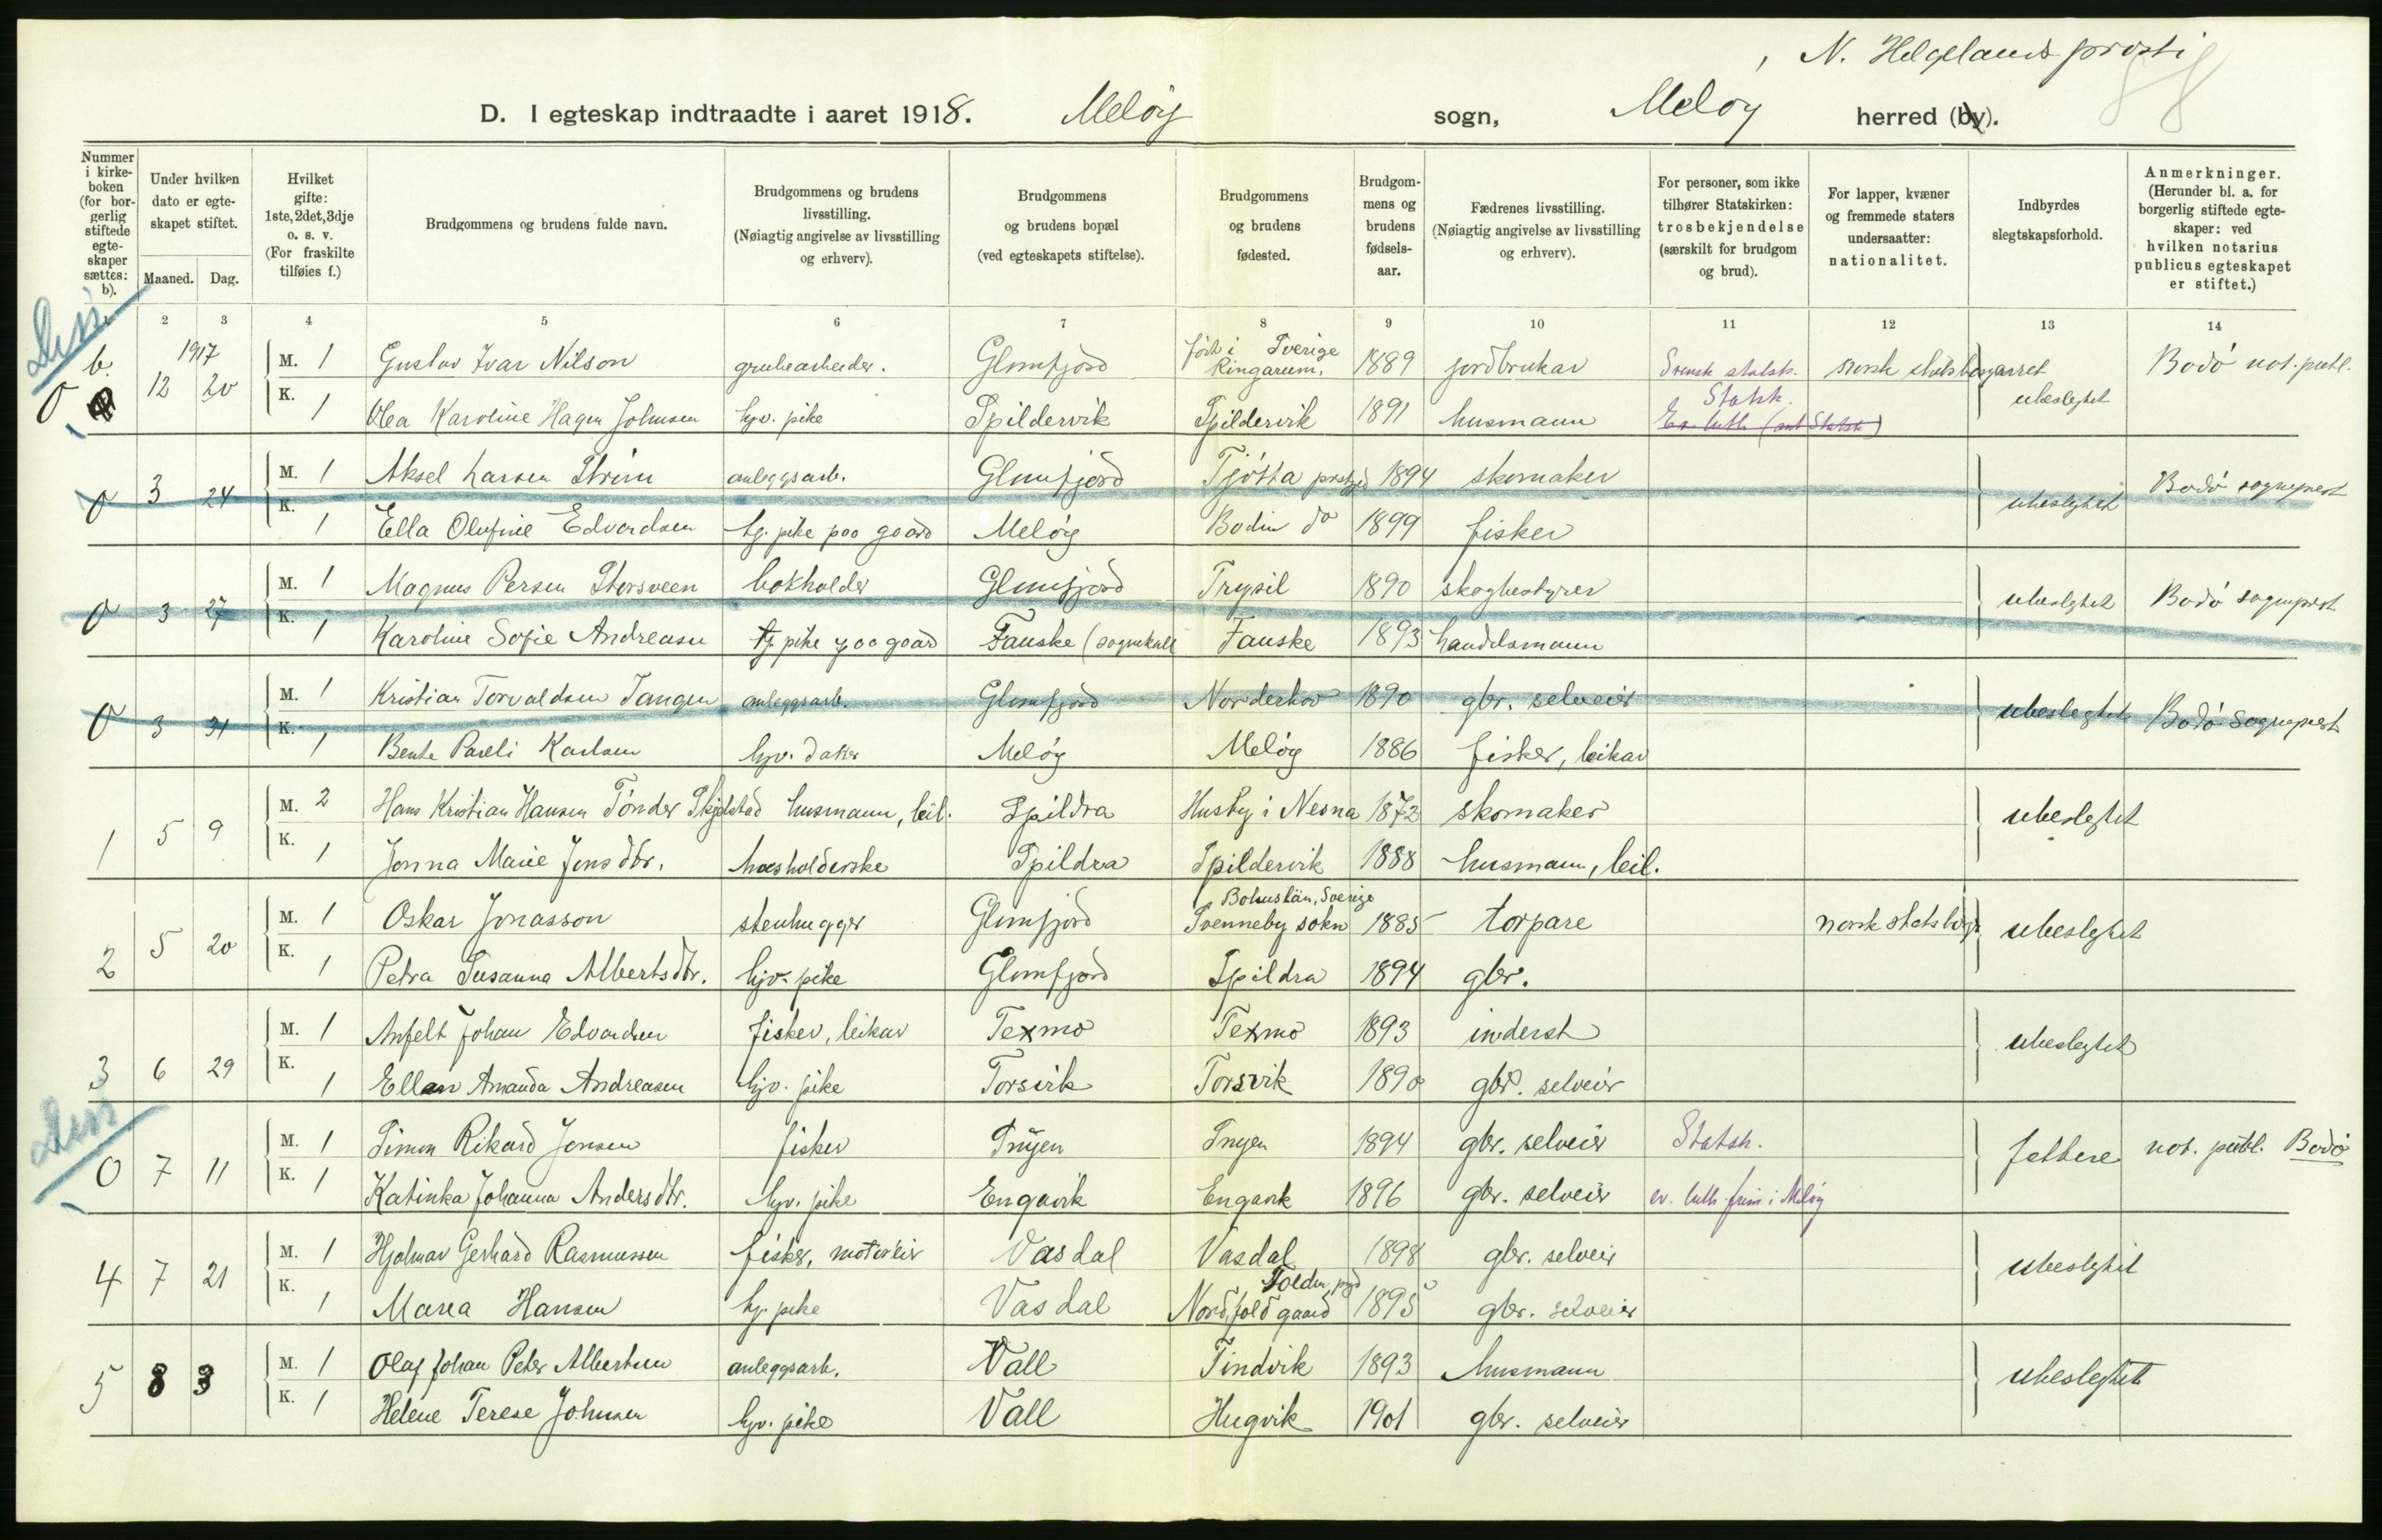 , N. Helgelands prosti
88
D. I egteskap indtraadte i aaret 1918. Meløy sogn, Meløy herred (by).
Nummer i kirkeboken (for borgerlig stiftede egteskaper sættes: b).
Under hvilken dato er egteskapet stiftet.
Maaned. Dag.
Hvilket gifte: 1ste, 2det, 3dje o. s. v. (For fraskilte tilføies f.)
Brudgommens og brudens fulde navn.
Brudgommens og brudens livsstilling. (Nøiagtig angivelse av livsstilling og erhverv).
Brudgommens og brudens bopæl (ved egteskapets stiftelse).
Brudgommens og brudens fødested.
Brudgommens og brudens fødselsaar.
Fædrenes livsstilling. (Nøiagtig angivelse av livsstilling og erhverv).
For personer, som ikke tilhører Statskirken: trosbekjendelse (særskilt for brudgom og brud).
For lapper, kvæner og fremmede staters undersaatter: nationalitet.
Indbyrdes slegtskapsforhold.
Anmerkninger. (Herunder bl. a. for borgerlig stiftede egteskaper: ved hvilken notarius publicus egteskapet er stiftet.)
1 2 3 4 5 6 7 8 9 10 11 12 13 14
Diss
b. 1917 12 20 M. 1 Gustav Ivar Nilson grubearbeider. Glomfjord født i Sverige Ringarum. 1889 jordbrukar Svensk statsk. norsk statsborgarret ubeslegtet Bodø not. publ.
0 K. 1 Olea Karoline Hagen Johnsen hjv. pike Spildervik Spildervik 1891 husmann Statsk. Ev. luth. (ant Statsk)
0 3 24 M. 1 Aksel Larsen Strøm anleggsarb. Glomfjord Tjøtta prstgjd 1894 skomaker ubeslegtet Bodø sogneprest
K. 1 Ella Olufine Edvardsen tj. pike paa gaard Meløy Bodin do 1899 fisker
0 3 27 M. 1 Magnus Persen Storsveen bokholder Glomfjord Trysil 1890 skogbestyrer ubeslegtet Bodø sogneprest
K. 1 Karoline Sofie Andreasen tj. pike paa gaard Fauske (sognekall Fauske 1893 handelsmann
0 3 31 M. 1 Kristian Torvaldsen Tangen anleggsarb. Glomfjord Norderhov 1890 gbr. selveier ubeslegtet Bodø sogneprest
K. 1 Bente Pareli Karlsen hjv. datter Meløy Meløy 1886 fisker, leikar
1 5 9 M. 2 Hans Kristian Hansen Tønder Skjelstad husmann, leil. Spildra Husby i Nesna 1872 skomaker ubeslegtet
K. 1 Jonna Marie Jensdtr. husholderske Spildra Spildervik 1888 husmann, leil.
2 5 20 M. 1 Oskar Jonasson stenhugger Glomfjord Bohuslän, Sverige Svenneby sokn 1885 torpare norsk statsborgr ubeslegtet
K. 1 Petra Susanna Albertsdtr. hjv. pike Glomfjord Spildra 1894 gbr.
3 6 29 M. 1 Anfelt Johan Edvardsen fisker, leikar Texmo Texmo 1893 inderst ubeslegtet
K. 1 Ellen Amanda Andreasen hjv. pike Torsvik Torsvik 1890 gbr. selveier
Diss
0 7 11 M. 1 Simon Rikard Jensen fisker Tnyen Tnyen 1894 gbr. selveier Statsk. fettere not. publ. Bodø
K. 1 Katinka Johanna Andersdtr. hjv. pike Engavik Engavik 1896 gbr. selveier ev. luth. frim i Meløy
4 7 21 M. 1 Hjalmar Gerhard Rasmussen fisker, motoreier Vasdal Vasdal 1898 gbr. selveier ubeslegtet
K. 1 Maria Hansen tj. pike Vasdal Nordfold gaard Folden pgd 1895 gbr. selveier
5 8 3 M. 1 Olaf Johan Peter Albertsen anleggsarb. Vall Tindvik 1893 husmann ubeslegtet
K. 1 Helene Terese Johnsen hjv. pike Vall Hugvik 1901 gbr. selveier